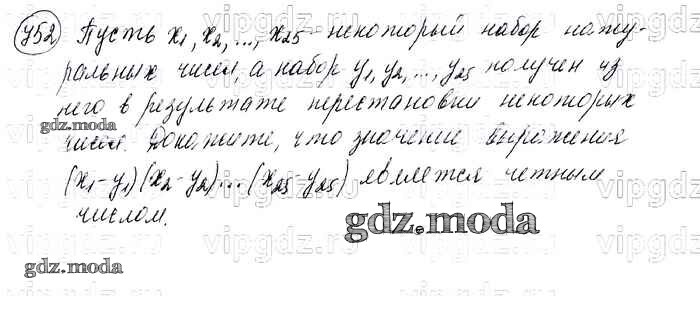 752 Пусть x1, x2, ..., x25 - некоторый набор нату-
ральных чисел, а набор y1, y2, ..., y25 получен из
него в результате перестановки некоторых
чисел. Докажите, что значение выражения
(x1-y1)(x2-y2)...(x25-y25) является четным
числом.
gdz.moda
gdz.moda
gdz.moda